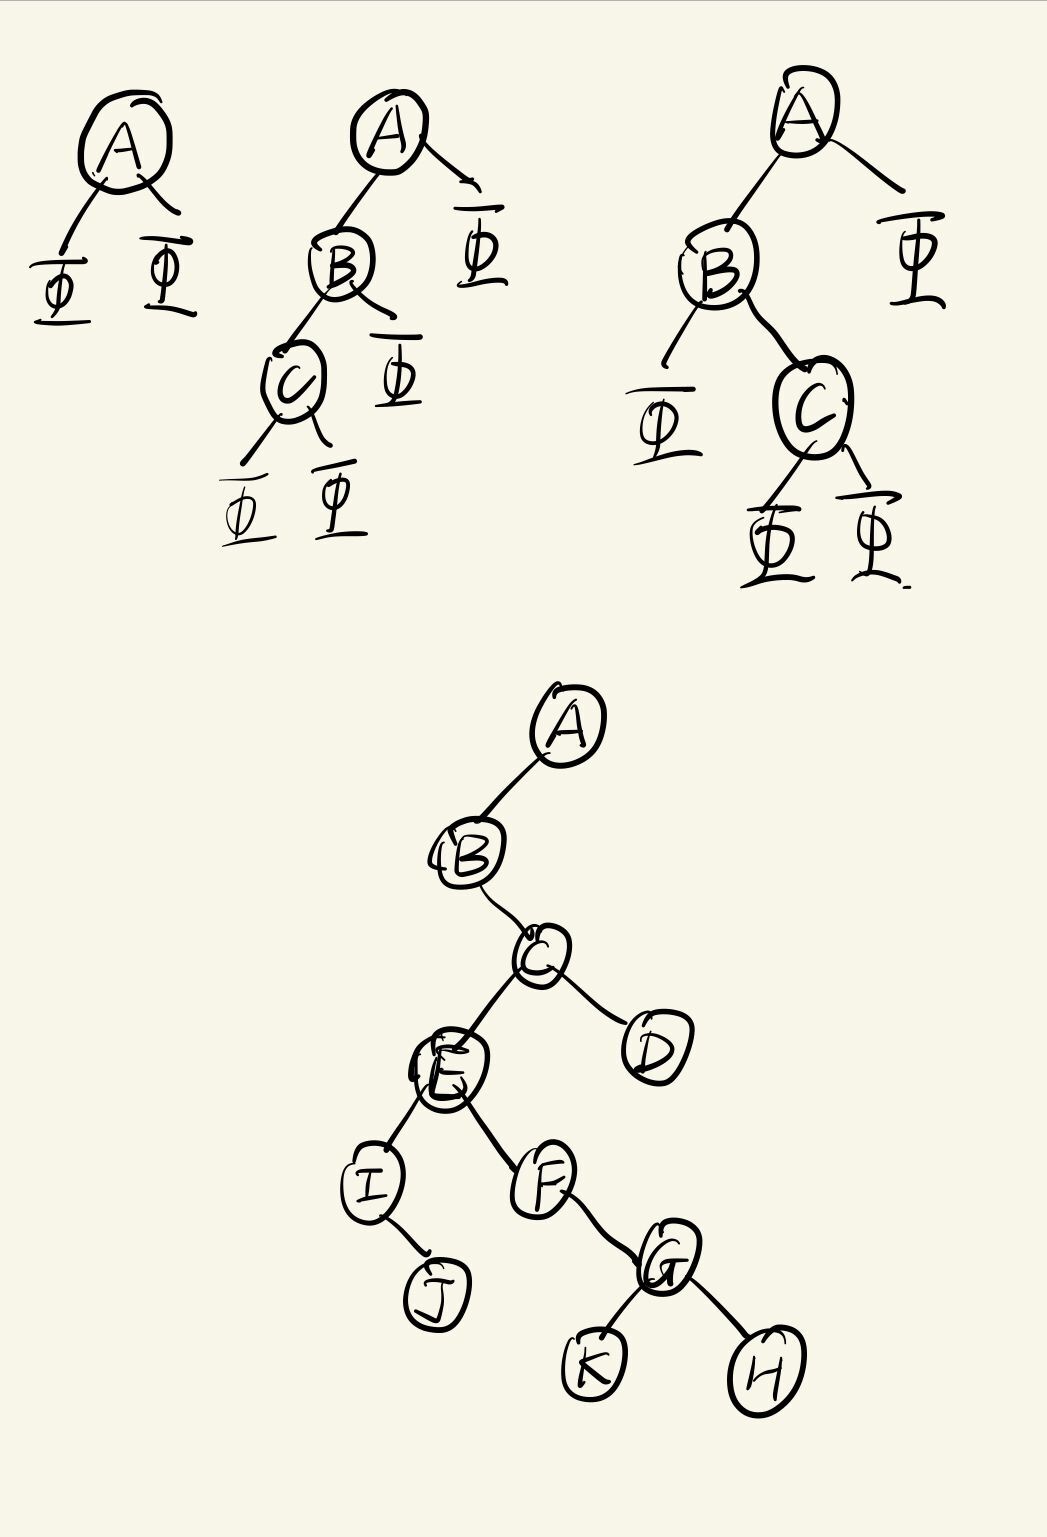 A
Φ Φ
A
B Φ
C Φ
Φ Φ
A
B Φ
Φ C
Φ Φ
A
B
C
E D
I F
J G
K H